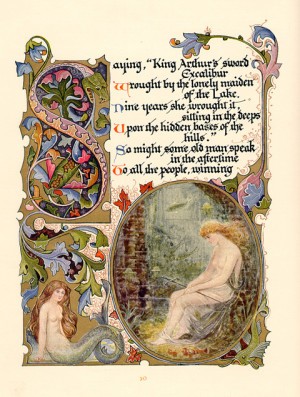 Saying, "King Arthur's sword
Excalibur
Wrought by the lonely maiden
of the Lake.
Nine years she wrought it,
sitting in the deeps
Upon the hidden bases of the
hills."
So might some old man speak
in the aftertime
To all the people, winning
90